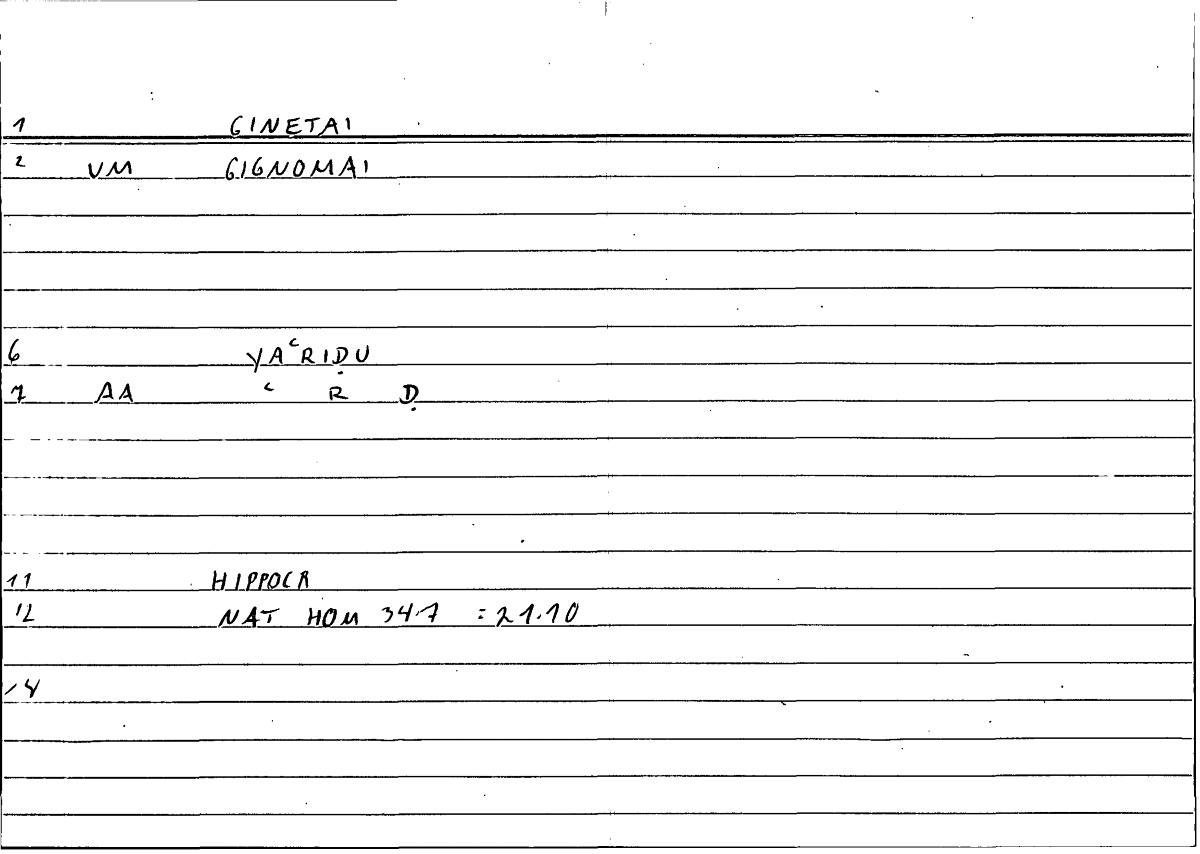 1 GINETAI
2 VM GIGNOMAI
6 YAʿRIḌU
7 AA ʿ R Ḍ
11 HIPPOCR
12 NAT HOM 34.7 = 21.10
14